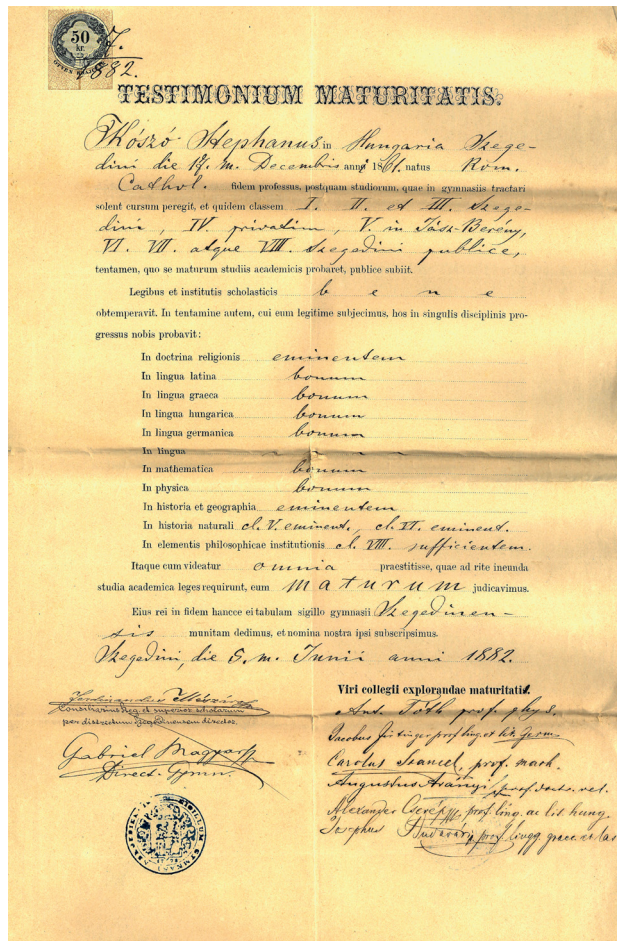 50
kr.
7.
1882.
TESTIMONIUM MATURITATIS.
Kószó Stephanus in Hungaria Szege-
dini die m. Decembris anni 1861. natus Rom.
Cathol. fidem professus, postquam studiorum, quae in gymnasiis tractari
solent cursum peregit, et quidem classem I. II. et III. Szege-
dini, IV. privatim, V. in Jász-Berény,
VI. VII. atque VIII. Szegedini publice,
tentamen, quo se maturum studiis academicis probaret, publice subiit.
Legibus et institutis scholasticis bene
obtemperavit. In tentamine autem, cui eum legitime subjecimus, hos in singulis disciplinis pro-
gressus nobis probavit:
In doctrina religionis eminentem
In lingua latina bonum
In lingua graeca bonum
In lingua hungarica bonum
In lingua germanica bonum
In lingua
In mathematica bonum
In physica bonum
In historia et geographia eminentem
In historia naturali cl. V. eminent., cl. VI. eminent.
In elementis philosophicae institutionis cl. VIII. sufficientem.
Itaque cum videatur omnia praestitisse, quae ad rite ineunda
studia academica leges requirunt, eum maturum judicavimus.
Eius rei in fidem hancce ei tabulam sigillo gymnasii Szegedinen-
sis munitam dedimus, et nomina nostra ipsi subscripsimus.
Szegedini, die 5. m. Junii anni 1882.
Viri collegii explorandae maturitatis.
Ferdinandus Mészáros
Consiliarius Reg. et superior scholarum
per districtum Szegedinensem director.
Gabriel Magyar
Direct. Gymn.
Ant. Tóth prof. phys.
Jacobus prof. ling. et lit. Germ.
Carolus prof. math.
Augustus Arányi prof. doctr. rel.
Alexander Cserép prof. ling. ac lit. hung.
Josephus prof. lingg. graec. et lat.